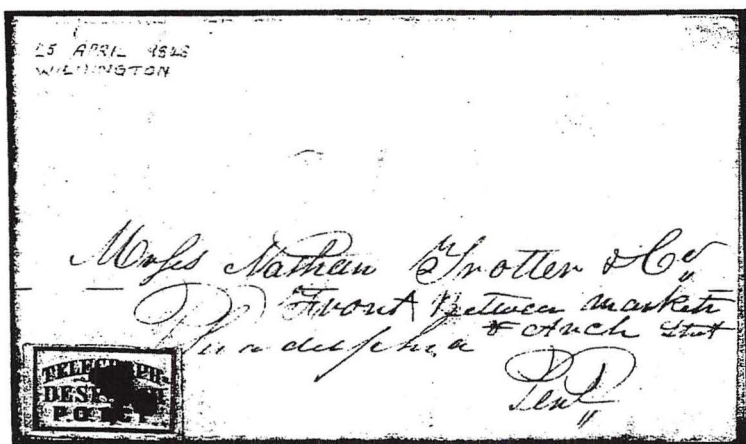 25 APRIL 1848
WILMINGTON
Messs Nathan Trotter & Co
Front Between market
& Arch Stret
Philadelphia
Pena
TELEGRAPH
DES
PO